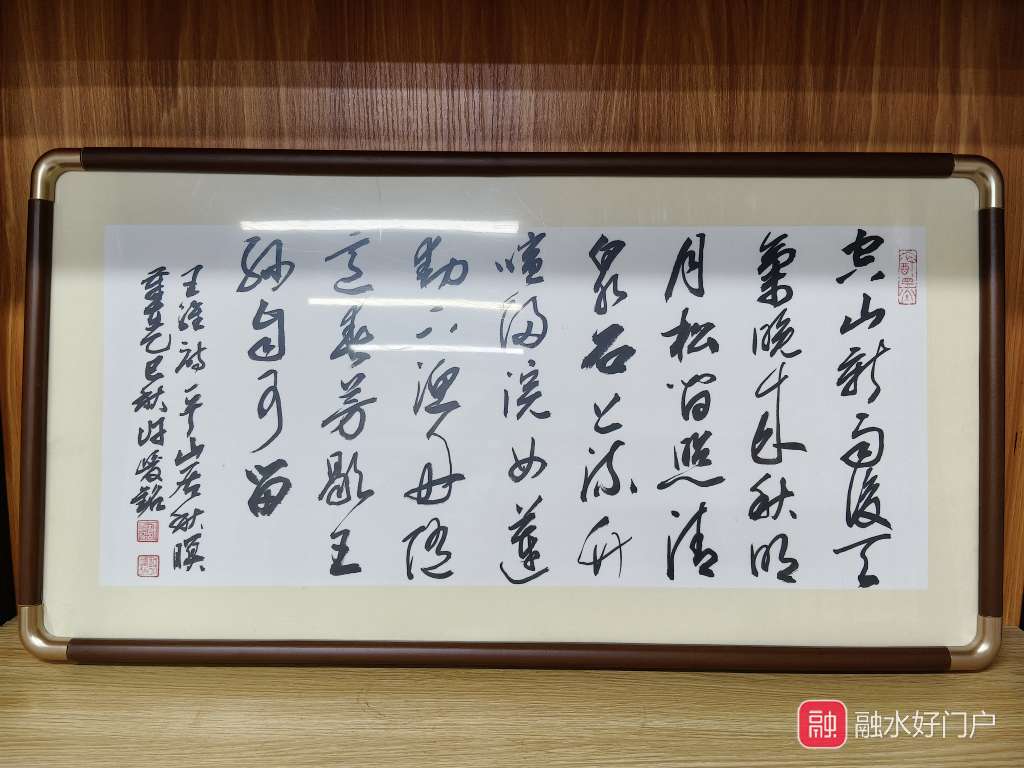 空山新雨後天
氣晚来秋明
月松間照清
泉石上流竹
喧歸浣女蓮
動下漁舟随
意春芳歇王
孫自可留
王維詩一首山居秋暝
乙巳秋峻銘
融 融水好门户